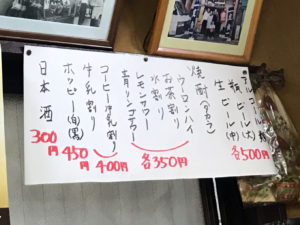 瓶ビール(大)
生ビール(中)
各500円
焼酎(タカラ)
ウーロンハイ
お茶割り
水割り
レモンサワー
青リンゴサワー
各350円
コーヒー牛乳割り
牛乳割り
400円
ホッピー(白・黒)
450円
日本酒
300円